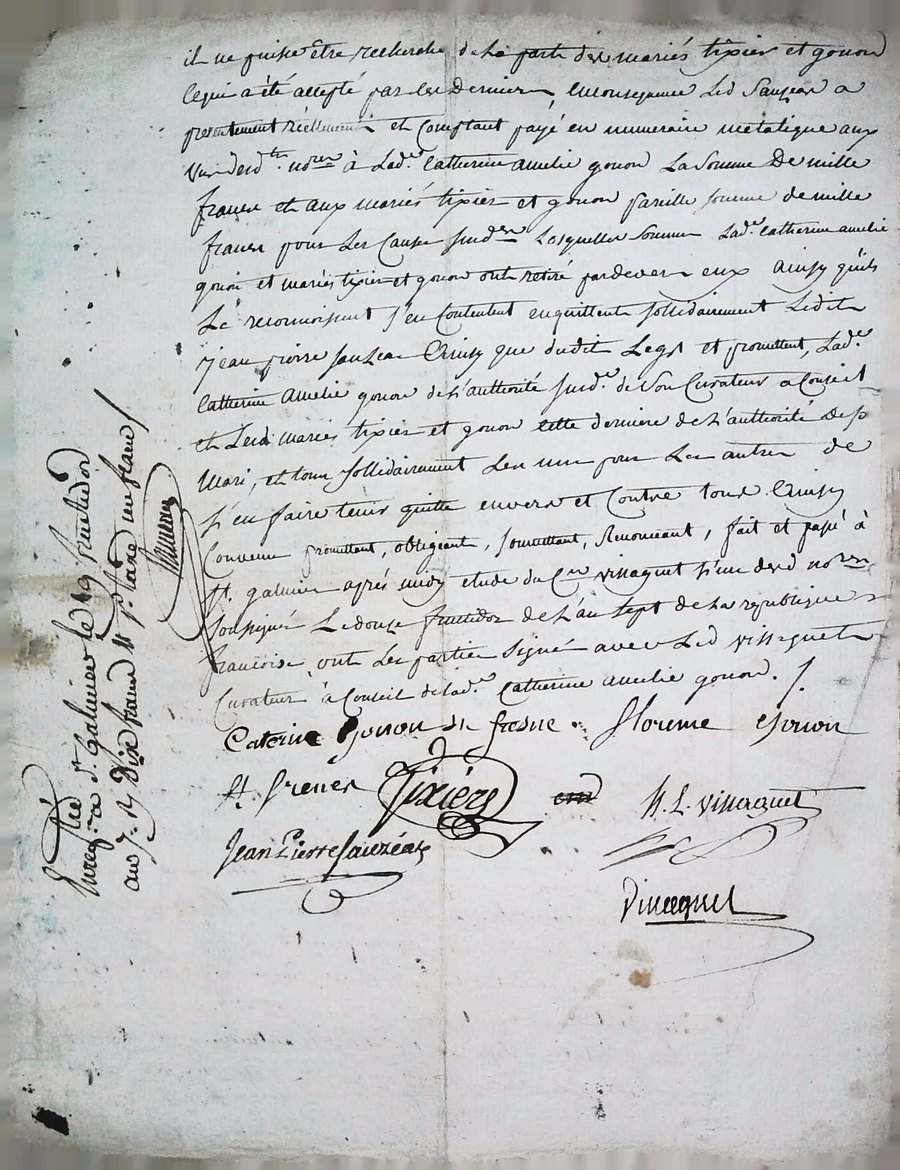 il ne puisse être recherché de la parte des mariés tixier et gonon
Ce qui a été accepté par les Derniers, En consequence Led Sauzéas a
presentement réellement et Comptant payé en numeraire metalique aux
vus desd. no.res à Lad.e Catherine amelie gonon La Somme De mille
francs et aux mariés tixier et gonon pareille somme de mille
francs pour Les Causes susd.es Lesquelles sommes Lad.e Catherine amelie
gonon et mariés tixier et gonon ont retiré pardevers eux ainsy qu'ils
Le reconnoissent s'en Contentent en quittent sollidairement Ledit
jean pierre sauzeas Ainsy que dudit Legs et promettent, Lad.e
Catherine Amelie gonon de L'authorité susd.e de son Curateur a Conseil
et Lesd mariés tixier et gonon Cette derniere de L'authorité de s.
Mari, et tous sollidairement L'un pour Les autres de
s'en faire tenir quitte envers et Contre tous. Ainsy
Convenu promettant, obligeant, soumettant, Renonceant, fait et passé à
St. galmier après midy etude du C.en vissaguet l'un desd no.res
soussignés Le douze fructidor de L'an sept de La republique
françoise, ont Les parties Signé avec Led vissaguet
Curateur à Conseil de Lad.e Catherine amelie gonon. /.
Caterine Gonon du fresne florime Gonon
Tixiérs
H. L. Vissaguet
Jean Pierre Sauzéas
Vissaguet
Enreg.tré a St. Galmier le 19 fructidor
an 7.